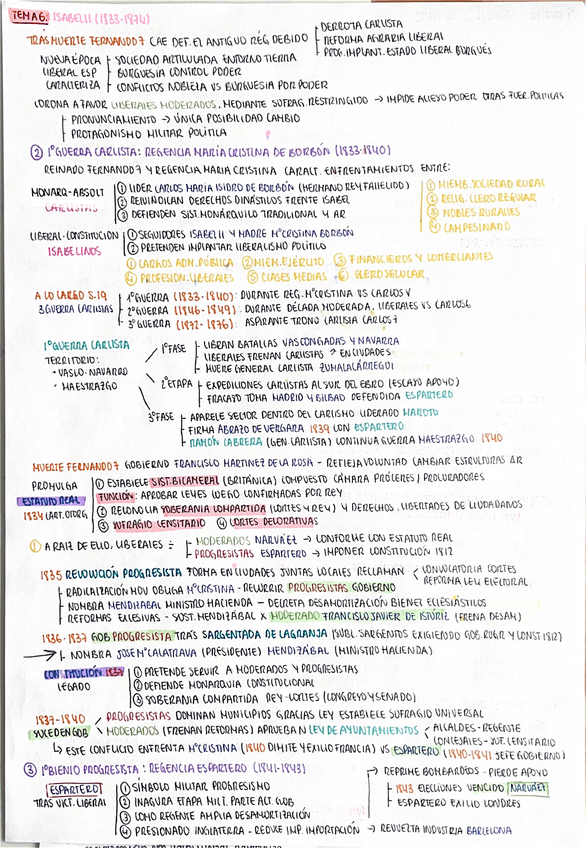 TEMA 6: ISABEL II (1833-1874)
TRAS MUERTE FERNANDO 7 CAE DEF. EL ANTIGUO RÉG DEBIDO
DERROTA CARLISTA
REFORMA AGRARIA LIBERAL
PROF. IMPLANT. ESTADO LIBERAL BURGUÉS
NUEVA ÉPOCA
LIBERAL ESP
CARACTERIZA
SOCIEDAD ARTICULADA ENTORNO TIERRA
BURGUESIA CONTROL PODER
CONFLICTOS NOBLEZA VS BURGUESIA POR PODER
CORONA A FAVOR LIBERALES MODERADOS, MEDIANTE SUFRAG. RESTRINGIDO → IMPIDE ACCESO PODER OTRAS FUER. POLITICAS
PRONUNCIAMIENTO → ÚNICA POSIBILIDAD CAMBIO
PROTAGONISMO MILITAR POLITICA
② 1ª GUERRA CARLISTA: REGENCIA MARÍA CRISTINA DE BORBÓN (1833-1840)
REINADO FERNANDO 7 Y REGENCIA MARIA CRISTINA CARACT. ENFRENTAMIENTOS ENTRE:
MONARQ-ABSOLT
CARLISTAS
① LIDER CARLOS MARIA ISIDRO DE BORBÓN (HERMANO REY FALLECIDO)
② REIVINDICAN DERECHOS DINÁSTILOS FRENTE ISABEL
③ DEFIENDEN SIST. MONÁRQUICO TRADICIONAL Y AR
① MIEMB. SOCIEDAD RURAL
② RELIG. CLERO REGULAR
③ NOBLES RURALES
④ CAMPESINADO
LIBERAL-CONSTITUCION
ISABELINOS
① SEGUIDORES ISABEL II Y MADRE Mª CRISTINA BORBÓN
② PRETENDEN IMPLANTAR LIBERALISMO POLÍTICO
① CARGOS ADM. PÚBLICA ② MIEM. EJÉRCITO ③ FINANCIEROS Y COMERCIANTES
④ PROFESION. LIBERALES ⑤ CLASES MEDIAS ⑥ CLERO SECULAR
A LO LARGO S.19
3 GUERRA CARLISTAS
1ª GUERRA (1833-1840): DURANTE REG. Mª CRISTINA VS CARLOS V
2ª GUERRA (1846-1849): DURANTE DÉCADA MODERADA, LIBERALES VS CARLOS 6
3ª GUERRA (1872-1876): ASPIRANTE TRONO CARLISTA CARLOS 7
1ª GUERRA CARLISTA
TERRITORIO:
• VASCO-NAVARRO
• MAESTRAZGO
1ª FASE
LIBRAN BATALLAS VASCONGADAS Y NAVARRA
LIBERALES FRENAN CARLISTAS → EN CIUDADES
MUERE GENERAL CARLISTA ZUMALACÁRREGUI
2ª ETAPA
EXPEDICIONES CARLISTAS AL SUR DEL EBRO (ESCASO APOYO)
FRACASO TOMA MADRID Y BILBAO DEFENDIDA ESPARTERO
3ª FASE
APARECE SECTOR DENTRO DEL CARLISMO LIDERADO MAROTO
FIRMA ABRAZO DE VERGARA 1839 CON ESPARTERO
RAMÓN CABRERA (GEN. CARLISTA) CONTINUA GUERRA MAESTRAZGO 1840
MUERTE FERNANDO 7 GOBIERNO FRANCISCO MARTINEZ DE LA ROSA - REFLEJA VOLUNTAD CAMBIAR ESTRUCTURAS AR
PROMULGA
ESTATUTO REAL
1834 (CART. OTORG
① ESTABLECE SIST. BICAMERAL (BRITÁNICA) COMPUESTO CÁMARA PRÓCERES / PROCURADORES
FUNCIÓN: APROBAR LEYES LUEGO CONFIRMADAS POR REY
② RECONOCIA SOBERANIA COMPARTIDA (CORTES Y REY) Y DERECHOS, LIBERTADES DE CIUDADANOS
③ SUFRAGIO CENSITARIO ④ CORTES DECORATIVAS
① A RAIZ DE ELLO, LIBERALES ÷
MODERADOS NARVÁEZ → CONFORME CON ESTATUTO REAL
PROGRESISTAS ESPARTERO → IMPONER CONSTITUCIÓN 1812
1835 REVOLUCIÓN PROGRESISTA FORMA EN CIUDADES JUNTAS LOCALES RECLAMAN
CONVOCATORIA CORTES
REFORMA LEY ELECTORAL
RADICALIZACIÓN MOV OBLIGA Mª CRISTINA - RECURRIR PROGRESISTAS GOBIERNO
NOMBRA MENDIZABAL MINISTRO HACIENDA - DECRETA DESAMORTIZACIÓN BIENES ECLESIÁSTICOS
REFORMAS EXCESIVAS - SUST. MENDIZÁBAL X MODERADO FRANCISCO JAVIER DE ISTÚRIZ (FRENA DESAM)
1836-1837 GOB PROGRESISTA TRAS SARGENTADA DE LA GRANJA (SUBL. SARGENTOS EXIGIENDO GOB PROGR Y CONST 1812)
NOMBRA JOSE Mª CALATRAVA (PRESIDENTE) MENDIZÁBAL (MINISTRO HACIENDA)
CONSTITUCIÓN 1837
LEGADO
① PRETENDE SERVIR A MODERADOS Y PROGRESISTAS
② DEFIENDE MONARQUIA CONSTITUCIONAL
③ SOBERANIA COMPARTIDA REY-CORTES (CONGRESO Y SENADO)
1837-1840
SUCEDEN GOB
PROGRESISTAS DOMINAN MUNICIPIOS GRACIAS LEY ESTABLECE SUFRAGIO UNIVERSAL
MODERADOS (FRENAN REFORMAS) APRUEBAN LEY DE AYUNTAMIENTOS
ALCALDES - REGENTE
CONCEJALES - SUF. CENSITARIO
↳ ESTE CONFLICTO ENFRENTA Mª CRISTINA (1840 DIMITE Y EXILIO FRANCIA) VS ESPARTERO (1840-1841 JEFE GOBIERNO)
③ 1º BIENIO PROGRESISTA: REGENCIA ESPARTERO (1841-1843)
ESPARTERO
TRAS VICT. LIBERAL
① SÍMBOLO MILITAR PROGRESISMO
② INAGURA ETAPA MILIT. PARTE ACT. GOB
③ COMO REGENTE AMPLIA DESAMORTIZACIÓN
④ PRESIONADO INGLATERRA - REDUCE IMP. IMPORTACIÓN → REVUELTA INDUSTRIA BARCELONA
REPRIME BOMBARDEOS - PIERDE APOYO
1843 ELECCIONES VENCIDO NARVÁEZ
ESPARTERO EXILIO LONDRES